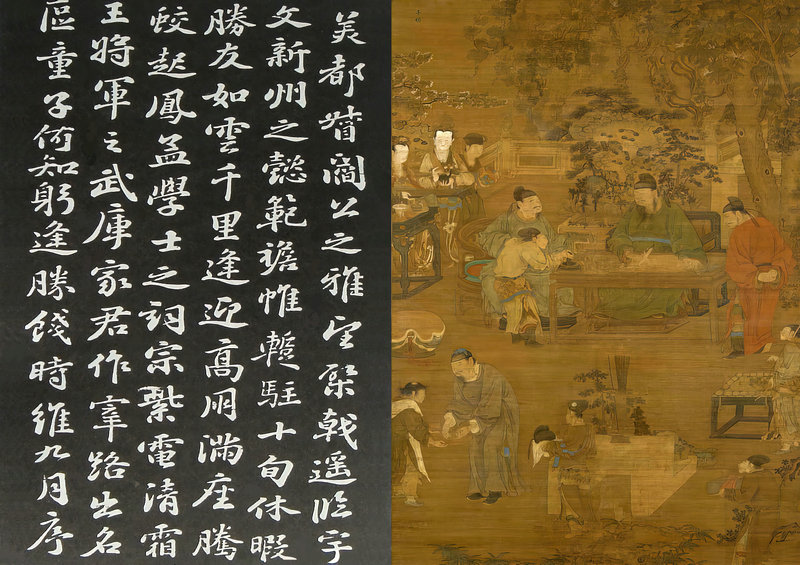 美都督閻公之雅望棨戟遥临宇
文新州之懿範襜帷暫駐十旬休暇
勝友如雲千里逢迎高朋滿座騰
蛟起鳳孟學士之詞宗紫電清霜
王將軍之武庫家君作宰路出名
區童子何知躬逢勝餞時維九月序